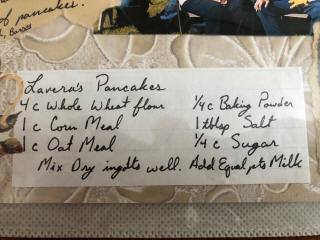 of pancakes.
Lavera's Pancakes
4 c Whole Wheat flour
1 c Corn Meal
1 c Oat Meal
1/4 c Baking Powder
1 tblsp Salt
1/4 c Sugar
Mix Dry ingdts well. Add Equal pts Milk